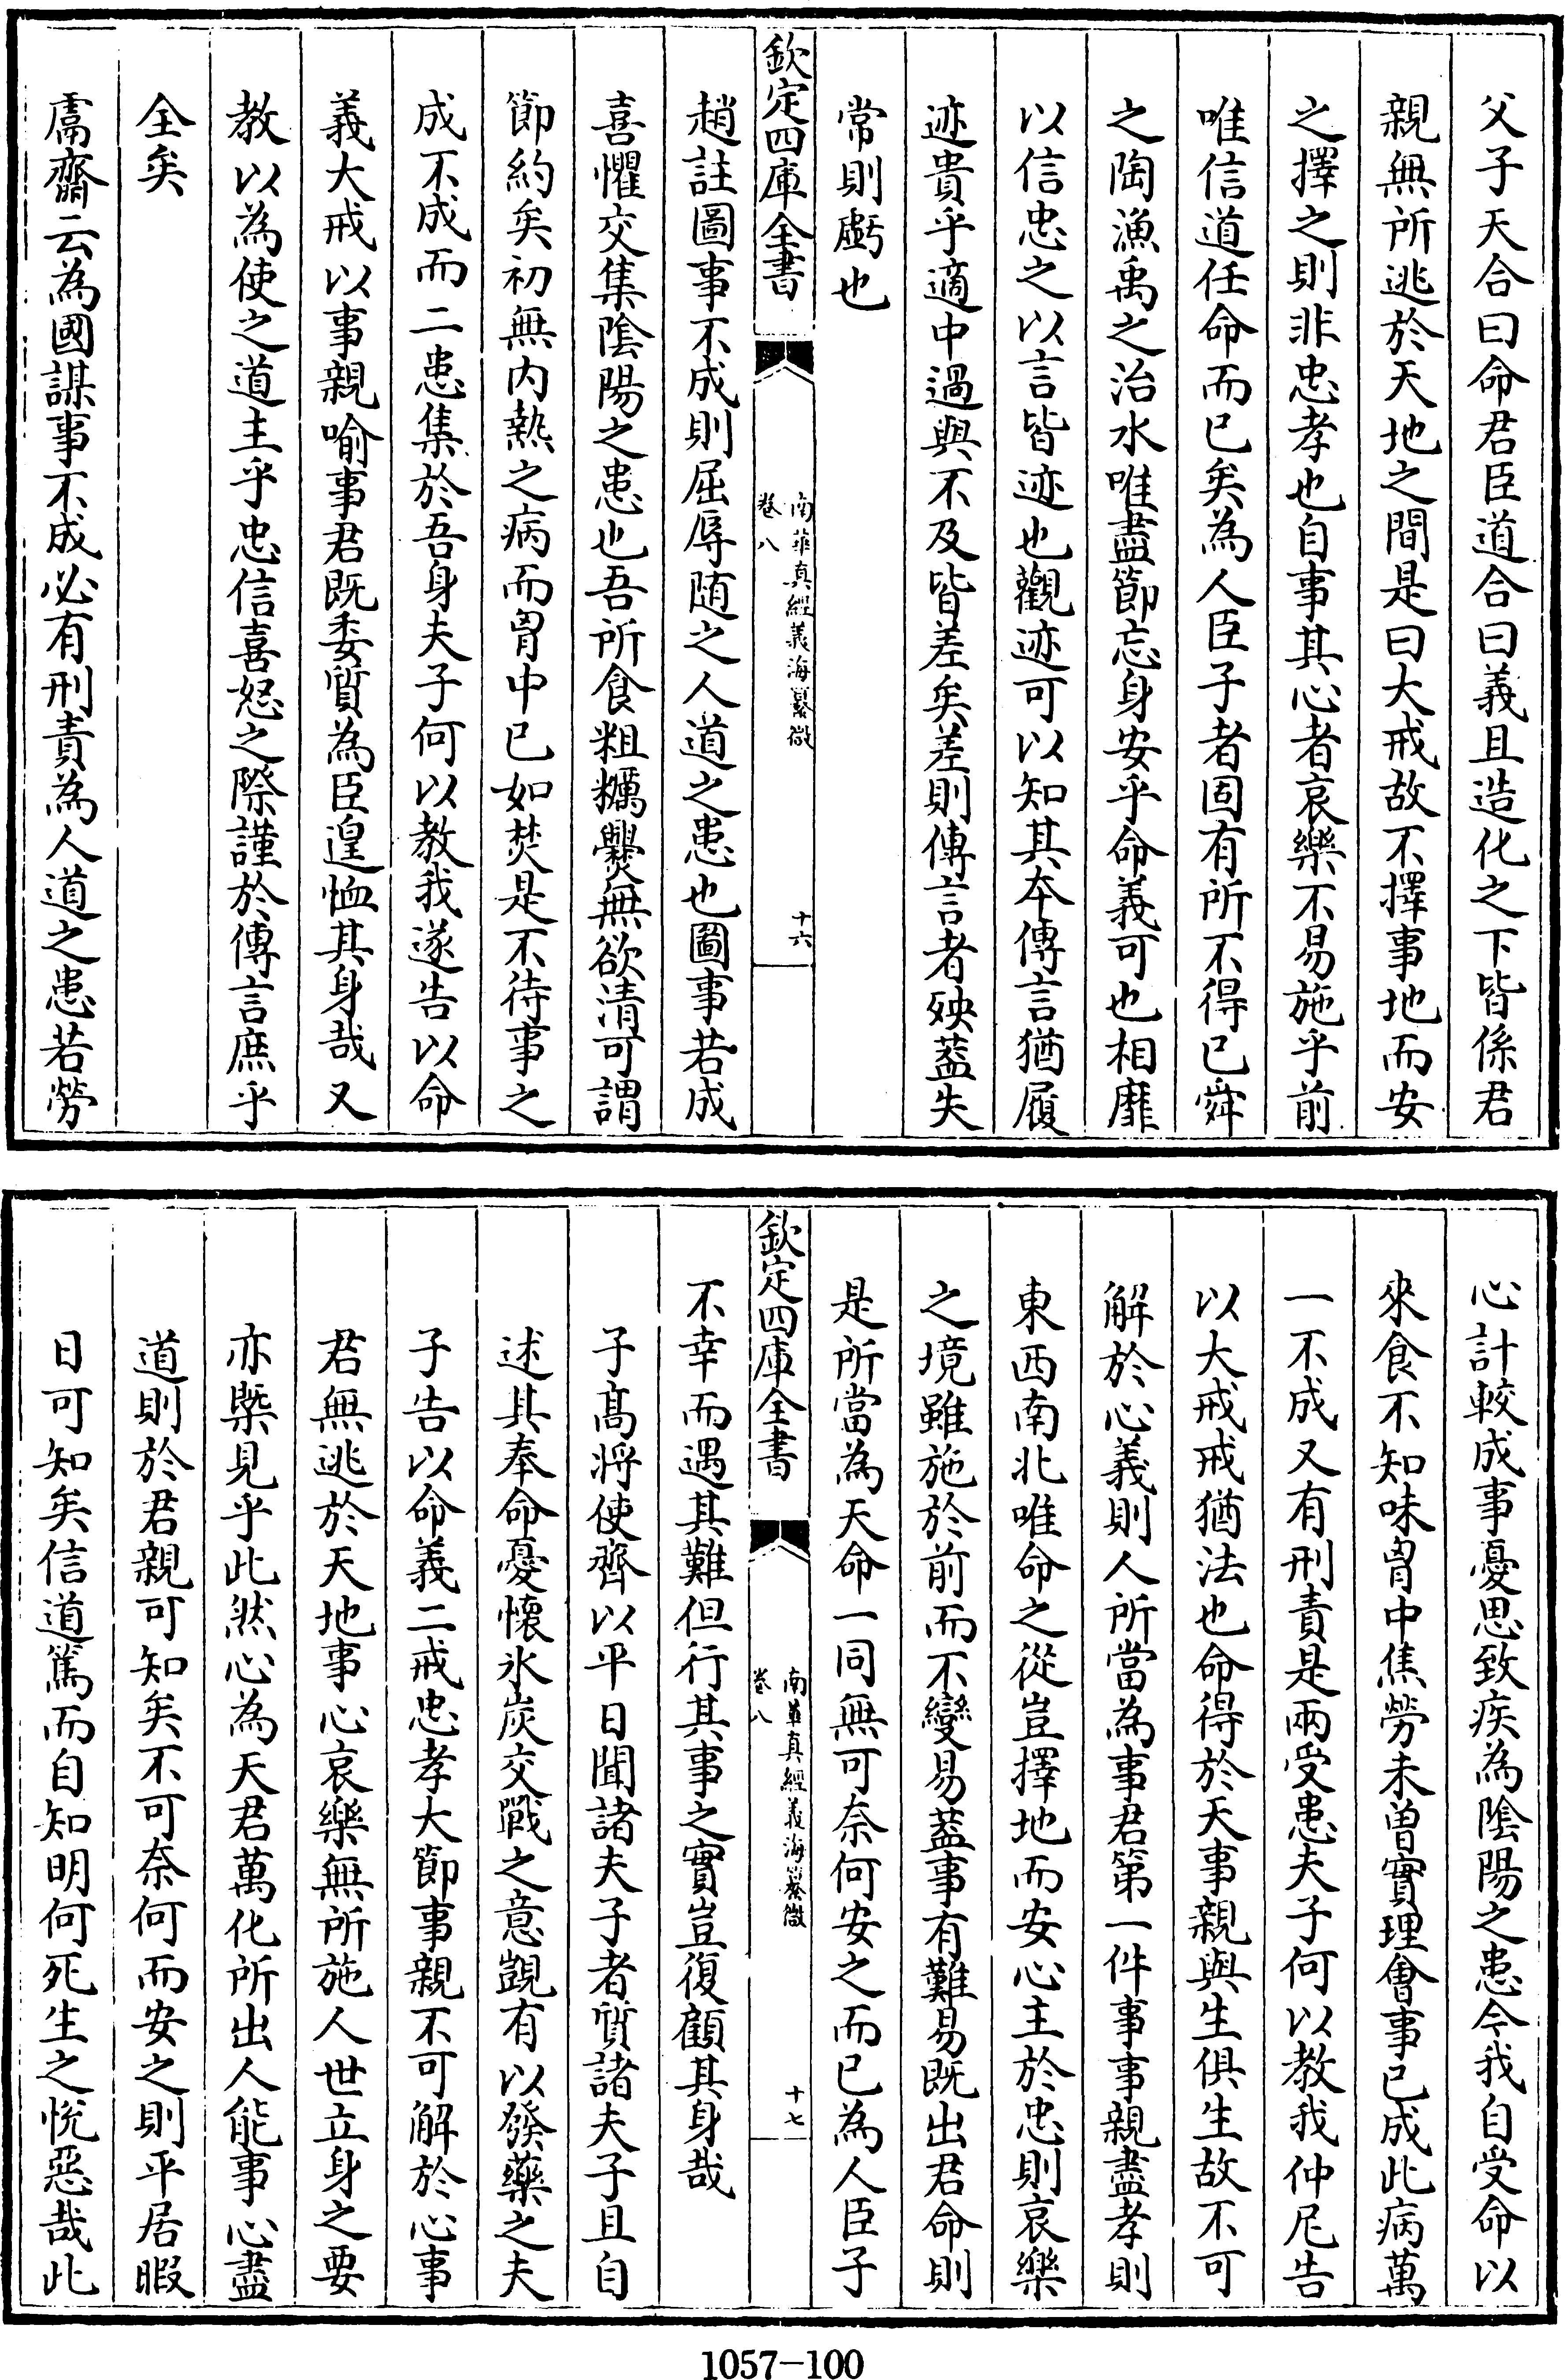 父子天合曰命君臣道合曰義且造化之下皆係君
親無所逃於天地之間是曰大戒故不擇事地而安
之擇之則非忠孝也自事其心者哀樂不易施乎前
唯信道任命而已矣為人臣子者固有所不得已舜
之陶漁禹之治水唯盡節忘身安乎命義可也相靡
以信忠之以言皆迹也觀迹可以知其本傳言猶履
迹貴乎適中過與不及皆差矣差則傳言者殃葢失
常則虧也
欽定四庫全書
南華真經義海纂微
卷八
十六
趙註圖事不成則屈辱随之人道之患也圖事若成
喜懼交集陰陽之患也吾所食粗糲爨無欲清可謂
節約矣初無内熱之病而胷中已如焚是不待事之
成不成而二患集於吾身夫子何以教我遂告以命
義大戒以事親喻事君既委質為臣遑恤其身哉又
教以為使之道主乎忠信喜怒之際謹於傳言庶乎
全矣
鬳齋云為國謀事不成必有刑責為人道之患若勞
心計較成事憂思致疾為陰陽之患今我自受命以
來食不知味胷中焦勞未曽實理㑹事已成此病萬
一不成又有刑責是兩受患夫子何以教我仲尼告
以大戒戒猶法也命得於天事親與生俱生故不可
解於心義則人所當為事君第一件事事親盡孝則
東西南北唯命之從豈擇地而安心主於忠則哀樂
之境雖施於前而不變易葢事有難易既出君命則
是所當為天命一同無可奈何安之而已為人臣子
欽定四庫全書
南華真經義海纂微
卷八
十七
不幸而遇其難但行其事之實豈復顧其身哉
子髙將使齊以平日聞諸夫子者質諸夫子且自
述其奉命憂懷氷炭交戰之意覬有以發藥之夫
子告以命義二戒忠孝大節事親不可解於心事
君無逃於天地事心哀樂無所施人世立身之要
亦槩見乎此然心為天君萬化所出人能事心盡
道則於君親可知矣不可奈何而安之則平居暇
日可知矣信道篤而自知明何死生之悅惡哉此
1057-100